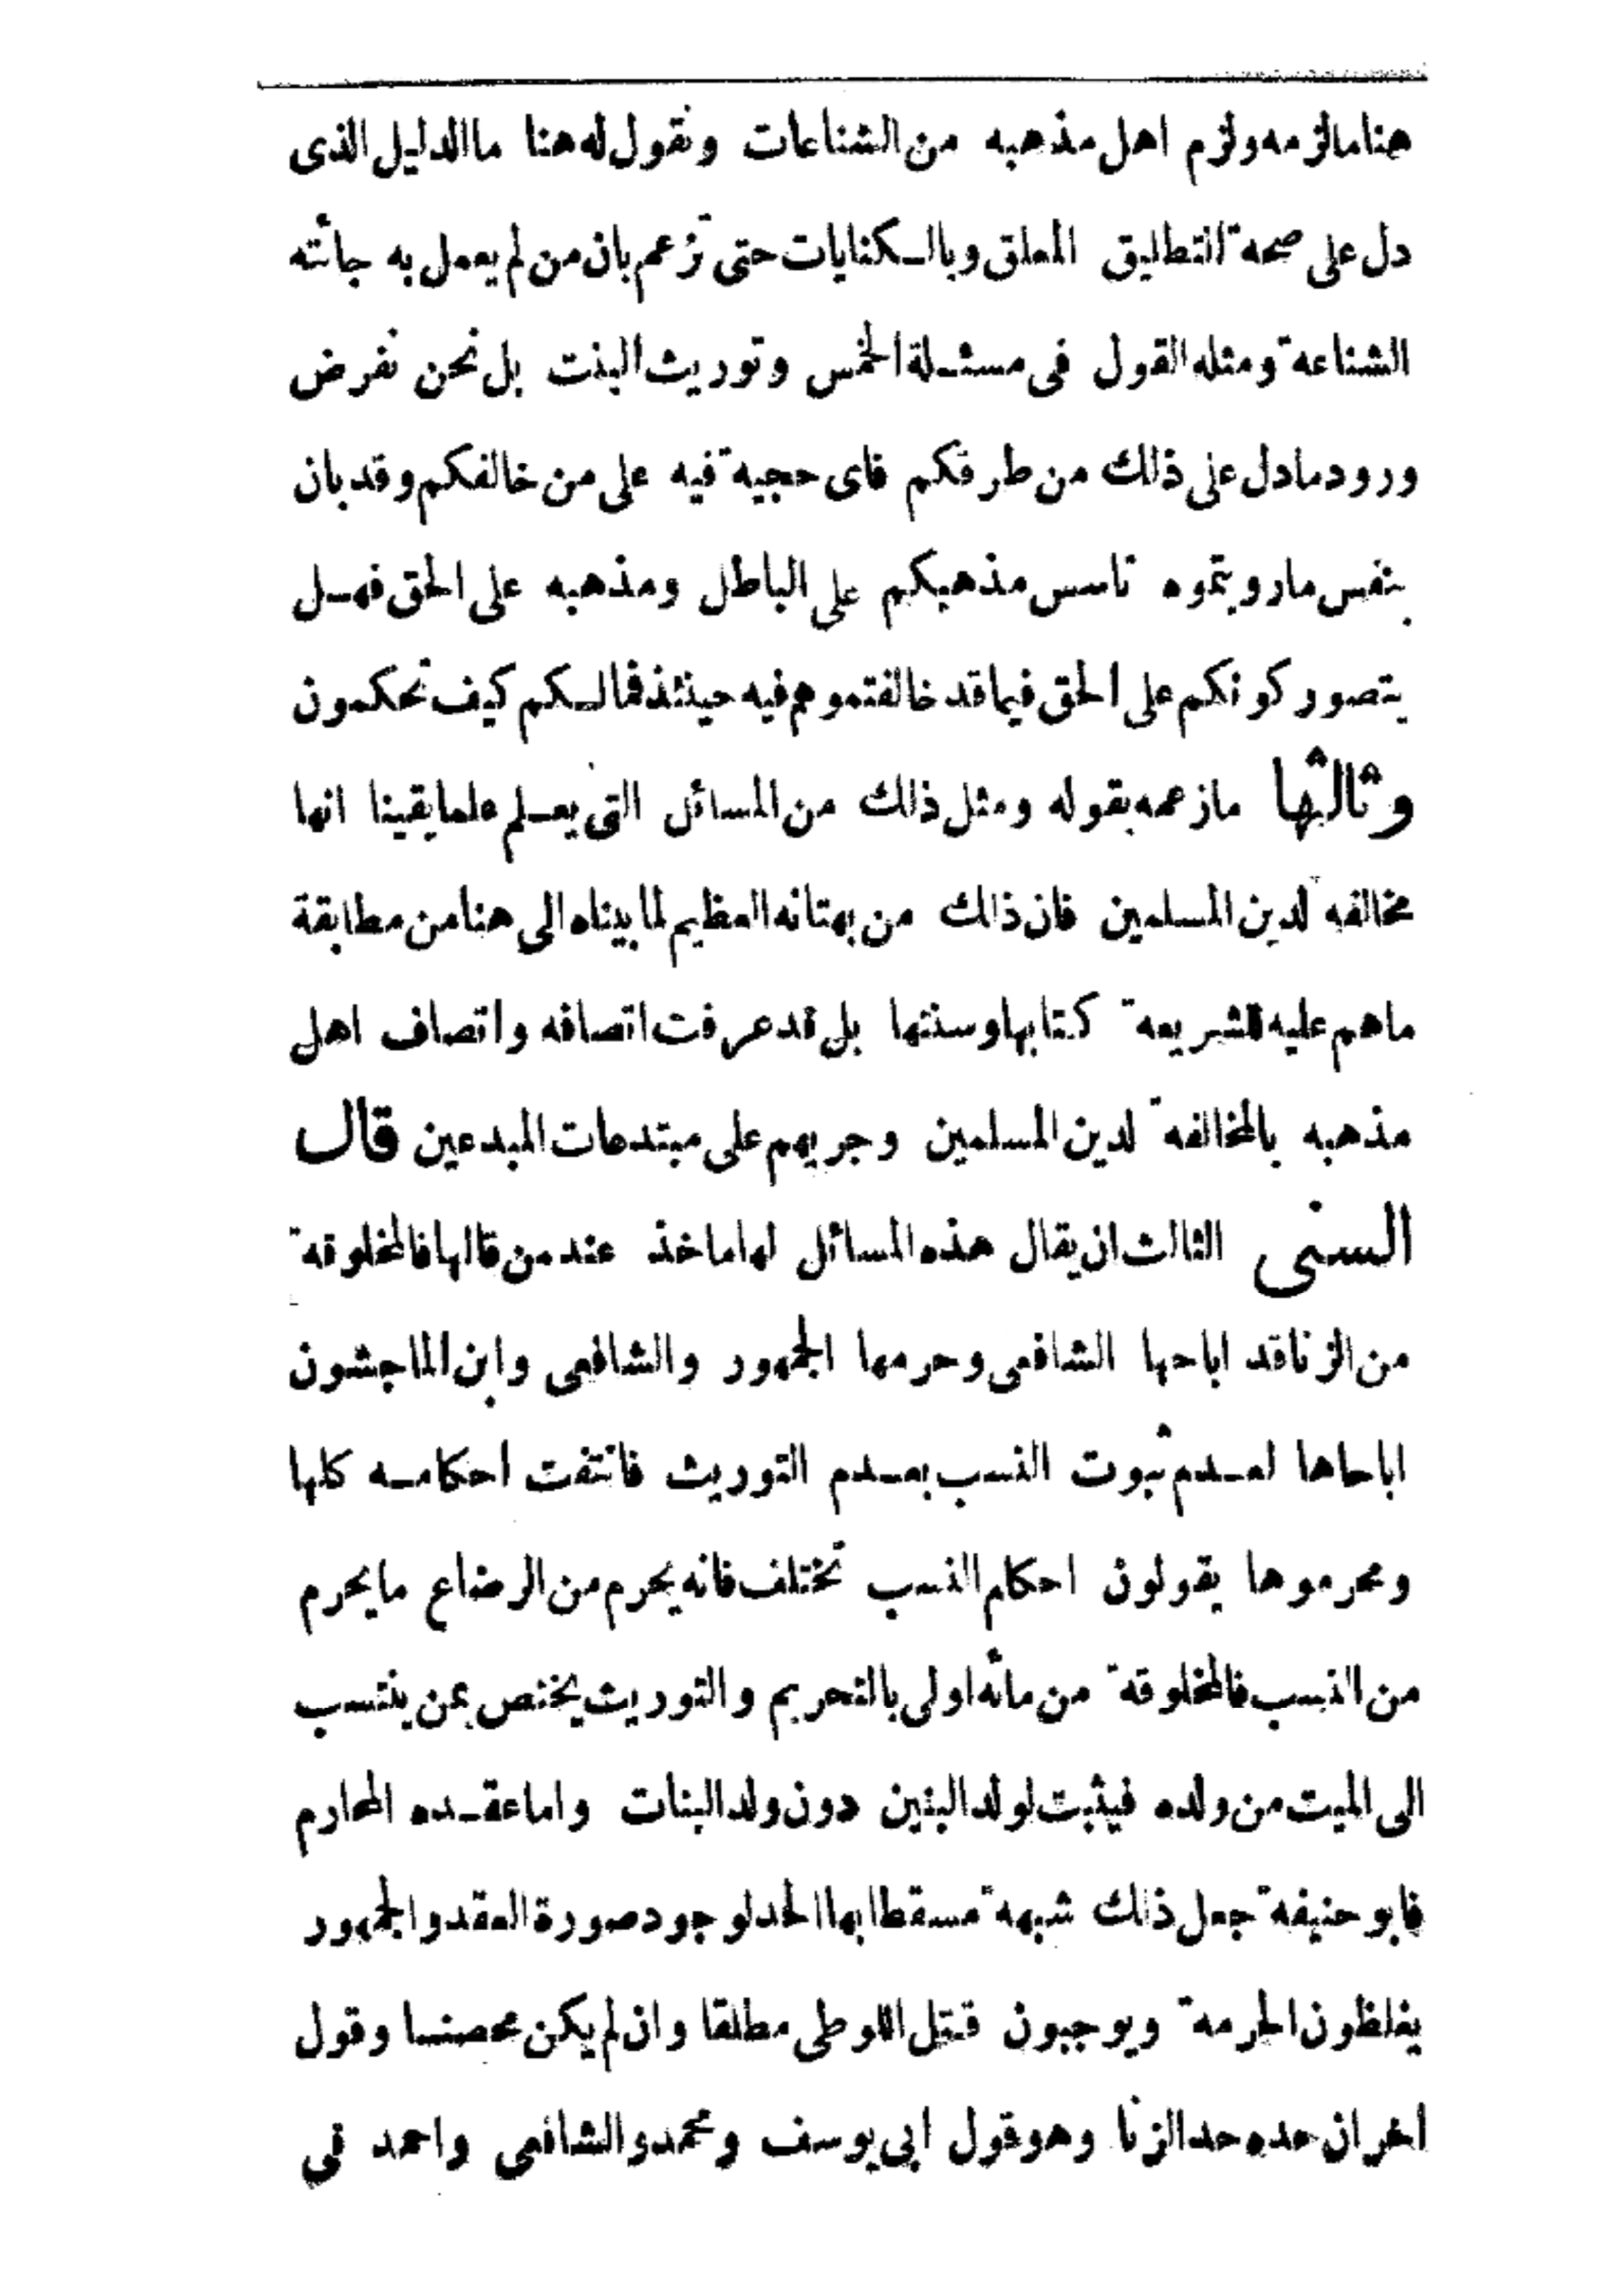 هنا مالزمه ولزم اهل مذهبه من الشناعات ونقول له هنا ما الدليل الذى
دل على صحة التطليق المعلق وبالكنايات حتى تزعم بان من لم يعمل به جائته
الشناعة ومثله القول فى مسئلة الخمس وتوريث البنت بل نحن نفرض
ورود مادل على ذلك من طرفكم فاى حجية فيه على من خالفكم وقد بان
بنفس مارويتموه تاسس مذهبكم على الباطل ومذهبه على الحق فهل
يتصور كونكم على الحق فيما قد خالفتموهم فيه حينئذ فمالكم كيف تحكمون
وثالثها مازعمه بقوله ومثل ذلك من المسائل التى يعلم علما يقينا انها
مخالفة لدين المسلمين فان ذلك من بهتانه العظيم لما بيناه الى هنا من مطابقة
ماهم عليه للشريعة كتابها وسنتها بل قد عرفت اتصافه واتصاف اهل
مذهبه بالمخالفة لدين المسلمين وجريهم على مبتدعات المبدعين قال
السنى الثالث ان يقال هذه المسائل لها ماخذ عند من قالها فالمخلوقة
من الزنا قد اباحها الشافعى وحرمها الجمهور والشافعى وابن الماجشون
اباحاها لعدم ثبوت النسب بعدم التوريث فانتفت احكامه كلها
ومحرموها يقولون احكام النسب تختلف فانه يحرم من الرضاع مايحرم
من النسب فالمخلوقة من مائه اولى بالتحريم والتوريث يختص بمن ينتسب
الى الميت من ولده فيثبت لولد البنين دون ولد البنات واما عقده المحارم
فابو حنيفة جعل ذلك شبهة مسقطا بها الحد لوجود صورة العقد والجمهور
يغلظون الحرمة ويوجبون قتل اللوطى مطلقا وان لم يكن محصنا وقول
اخر ان حده حد الزنا وهو قول ابى يوسف ومحمد والشافعى واحمد فى